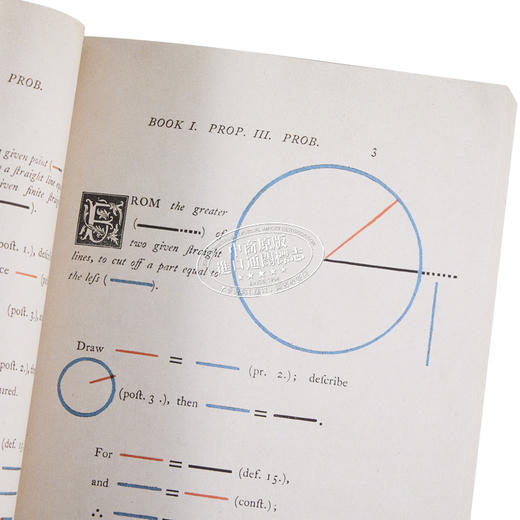 PROB.
given point (
a straight line eq
given finite straig
).
post. 1.), describ
(post. 3.),
post. 2.),
ured.
BOOK I. PROP. III. PROB.
3
FROM the greater
( ) of
two given straight
lines, to cut off a part equal to
the less ( ).
Draw = (pr. 2.); describe
(post. 3 .), then = .
For = (def. 15.),
and = (const.);
∴
中商原版
進口港閱標志